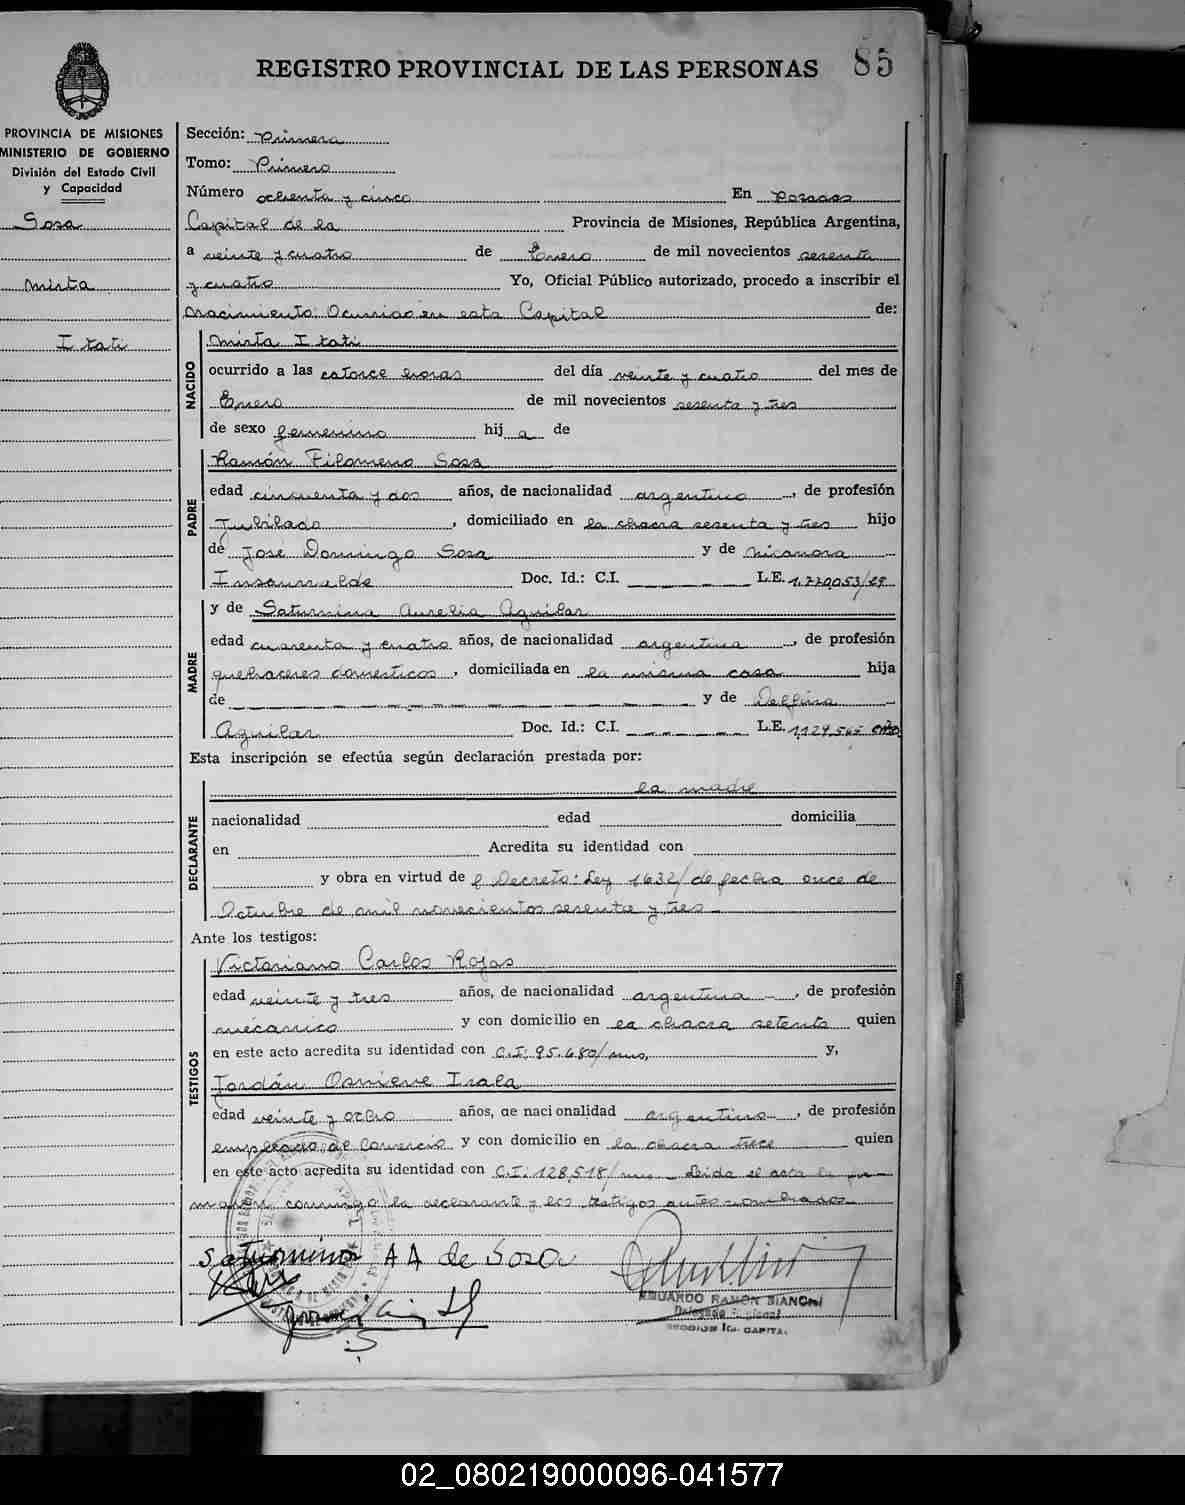 REGISTRO PROVINCIAL DE LAS PERSONAS 85
PROVINCIA DE MISIONES
MINISTERIO DE GOBIERNO
División del Estado Civil
y Capacidad
Sosa
Mirta
Itati
Sección: Primera
Tomo: Primero
Número ochenta y cinco En Posadas
Capital de la Provincia de Misiones, República Argentina,
a veinte y cuatro de Enero de mil novecientos sesenta
y cuatro Yo, Oficial Público autorizado, procedo a inscribir el
nacimiento: Ocurrido en esta Capital de:
NACIDO
Mirta Itati
ocurrido a las catorce horas del día veinte y cuatro del mes de
Enero de mil novecientos sesenta y tres
de sexo femenino hij a de
PADRE
Ramón Filomeno Sosa
edad cincuenta y dos años, de nacionalidad argentino, de profesión
Jubilado, domiciliado en la chacra sesenta y tres hijo
de José Domingo Sosa y de Nicanora
Insaurralde Doc. Id.: C.I. L.E. 1.770.053/
MADRE
y de Saturnina Aurelia Aguilar
edad cuarenta y cuatro años, de nacionalidad argentina, de profesión
quehaceres domesticos, domiciliada en la misma casa hija
de y de Delfina
Aguilar Doc. Id.: C.I. L.E. 1.129.565
Esta inscripción se efectúa según declaración prestada por:
DECLARANTE
la madre
nacionalidad edad domicilia
en Acredita su identidad con
y obra en virtud de Decreto: Ley 1632/ de fecha once de
Octubre de mil novecientos sesenta y tres
Ante los testigos:
TESTIGOS
Victoriano Carlos Rojas
edad veinte y tres años, de nacionalidad argentina, de profesión
mecanico y con domicilio en la chacra setenta quien
en este acto acredita su identidad con C.I: 95.680/mns, y,
Jordán Osnieve Irala
edad veinte y ocho años, de nacionalidad argentino, de profesión
empleado de Comercio y con domicilio en la chacra trece quien
en este acto acredita su identidad con C.I: 128.518/mns Leida el acta la fir-
maron conmigo la declarante y los testigos antes nombrados
Saturnina A A de Sosa
EDUARDO RAMON BIANCHI
Delegado Regional
SECCION 1ra. CAPITAL
02_080219000096-041577